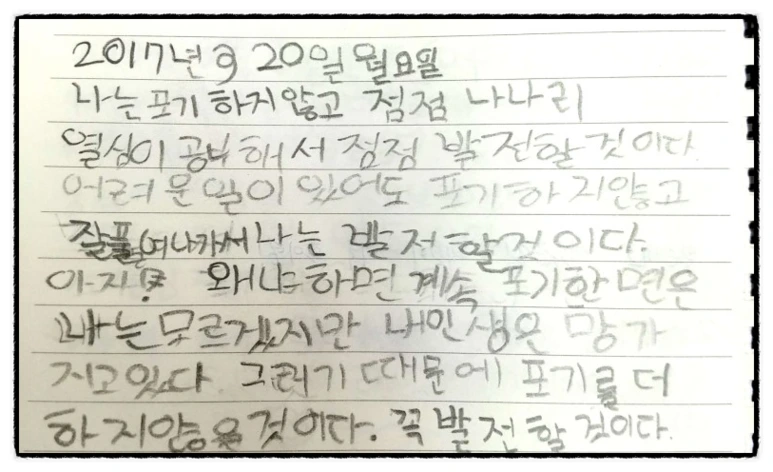 2017년 9 20일 월요일
나는포기 하지않고 점점 나나리
열심이 공부해서 점점 발전할 것이다
어려운일이 있어도 포기하지않고
잘풀어나가서 나는 발전할것이다.
왜냐하면 계속 포기한면은
나는모르겠지만 내인생은 망가
지고있다 그러기 때문에 포기를 더
하지않을것이다. 꼭발전할것이다.